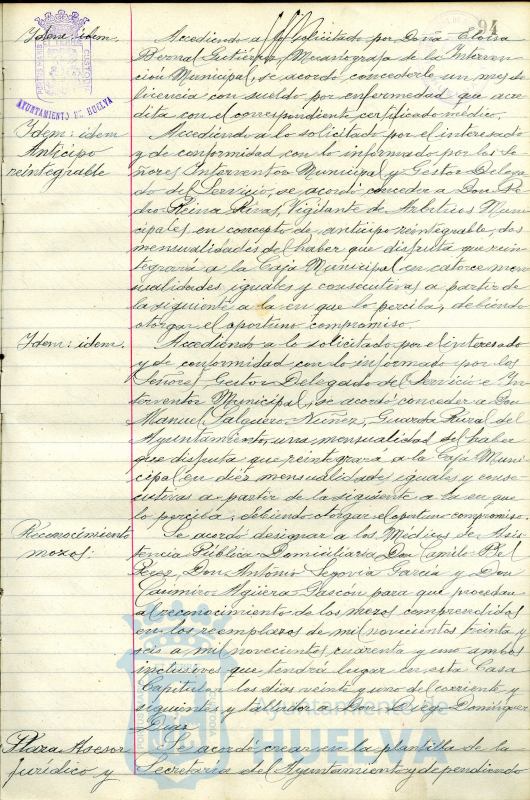 94
Idem: idem.
Accediendo a lo solicitado por Doña Eloisa
Bernal Gutiérrez, Mecanógrafa de la Interven-
ción Municipal, se acordó concederle un mes de
licencia con sueldo por enfermedad que acre-
dita con el correspondiente certificado médico.
AYUNTAMIENTO DE HUELVA
Idem: idem
Anticipo
reintegrable
Accediendo a lo solicitado por el interesado
y de conformidad con lo informado por los Se-
ñores Interventor Municipal y Gestor Delega-
do del Servicio, se acordó conceder a Don Pe-
dro Reina Rivas, Vigilante de Arbitrios Muni-
cipales en concepto de anticipo reintegrable, dos
mensualidades del haber que disfruta que rein-
tegrará a la Caja Municipal en catorce men-
sualidades iguales y consecutivas a partir de
la siguiente a la en que lo perciba, debiendo
otorgar el oportuno compromiso.
Idem: idem.
Accediendo a lo solicitado por el interesado
y de conformidad con lo informado por los
Señores Gestor Delegado del Servicio e In-
terventor Municipal, se acordó conceder a Don
Manuel Salguero Núñez, Guarda Rural del
Ayuntamiento, una mensualidad del haber
que disfruta que reintegrará a la Caja Muni-
cipal en diez mensualidades iguales y conse-
cutivas a partir de la siguiente a la en que
lo perciba, debiendo otorgar el oportuno compromiso.
Reconocimiento
mozos.
Se acordó designar a los Médicos de Asis-
tencia Pública Domiciliaria, Don Camilo
Pérez, Don Antonio Segovia García y Don
Casimiro Agüera Gascón para que procedan
al reconocimiento de los mozos comprendidos
en los reemplazos de mil novecientos treinta y
seis a mil novecientos cuarenta y uno ambos
inclusives que tendrá lugar en esta Casa
Capitular los días veinte y uno del corriente y
siguientes y tallador a Don Diego Domínguez
Ayuntamiento de
HUELVA
Plaza Asesor
Jurídico y
Se acordó crear en la plantilla de la
Secretaría del Ayuntamiento y dependiendo